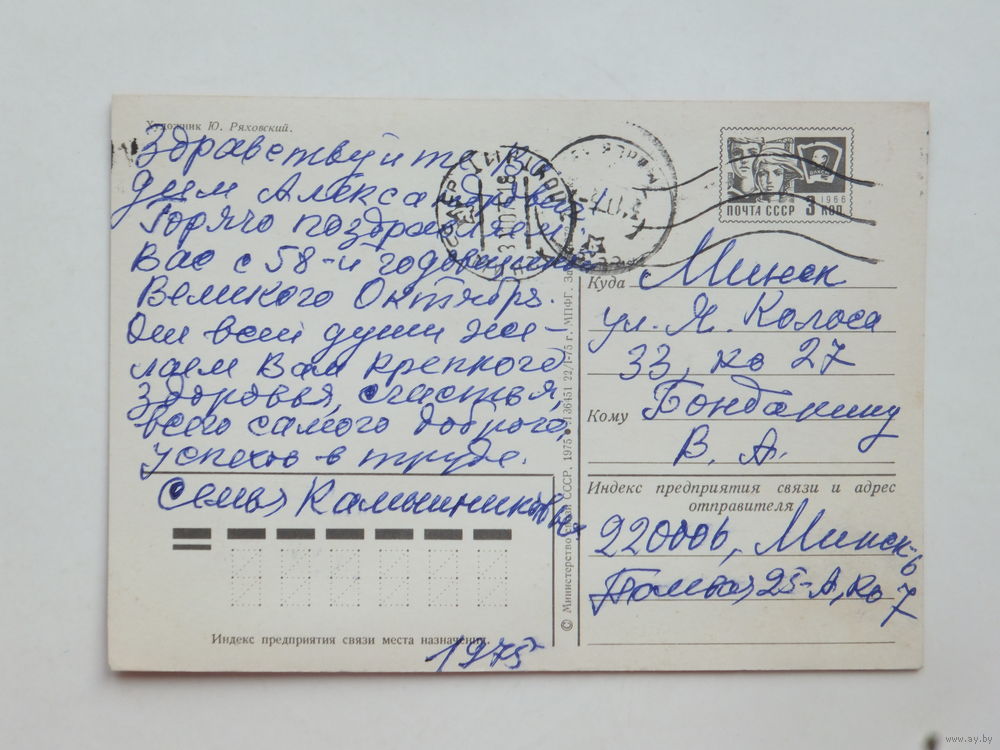 Художник Ю. Ряховский.
Здравствуйте Ва
дим Александрович
Горячо поздравляем
Вас с 58-й годовщиной
Великого Октября.
От всей души же-
лаем Вам крепкого
здоровья, счастья,
всего самого доброго,
успехов в труде.
Семья
1975
Индекс предприятия связи места назначения.
© Министерство связи СССР. 1975 • 136451 22/I-75 г. МПФГ. За
ПОЧТА СССР 3 КОП
1966
ВЛКСМ
Куда Минск
ул. Я. Колоса
33, кв 27
Кому
В. А.
Индекс предприятия связи и адрес
отправителя
220006, Минск-6
25-А, кв 7
www.ay.by